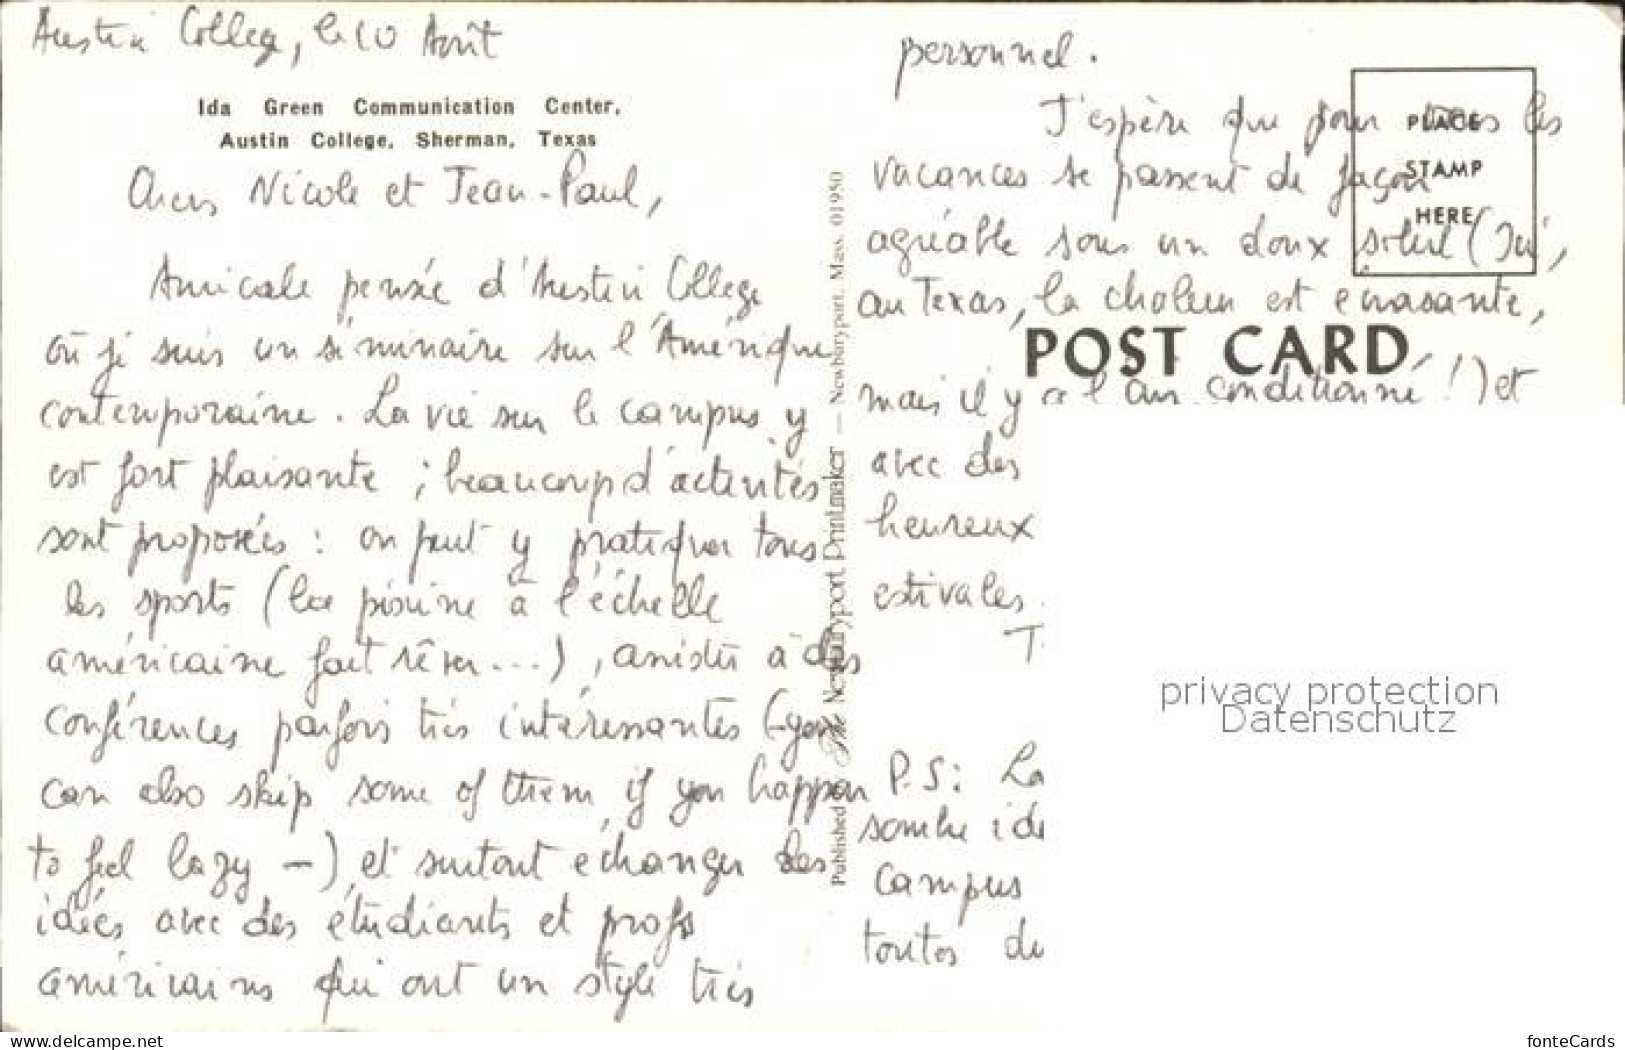 Austin College, le 10 Août
Ida Green Communication Center,
Austin College, Sherman, Texas
Chers Nicole et Jean-Paul,
Amicale pensée d'Austin College
où je suis un séminaire sur l'Amérique
contemporaine. La vie sur le campus y
est fort plaisante ; beaucoup d'activités
sont proposées : on peut y pratiquer tous
les sports (la piscine à l'échelle
américaine fait rêver...), assister à des
conférences parfois très intéressantes (-you
can also skip some of them, if you happen
to feel lazy -) et surtout échanger des
idées avec des étudiants et profs
américains qui ont un style très
personnel.
J'espère que pour vous les
vacances se passent de façon
agréable sous un doux soleil (Ici,
au Texas, la chaleur est écrasante,
mais il y a l'air conditionné !) et
avec des
heureux
estivales.
T.
P.S: La
sombre idé
campus
toutes du
PLACE
STAMP
HERE
POST CARD
Published by The Newburyport Printmaker — Newburyport, Mass. 01950
privacy protection
Datenschutz
www.delcampe.net
fonteCards